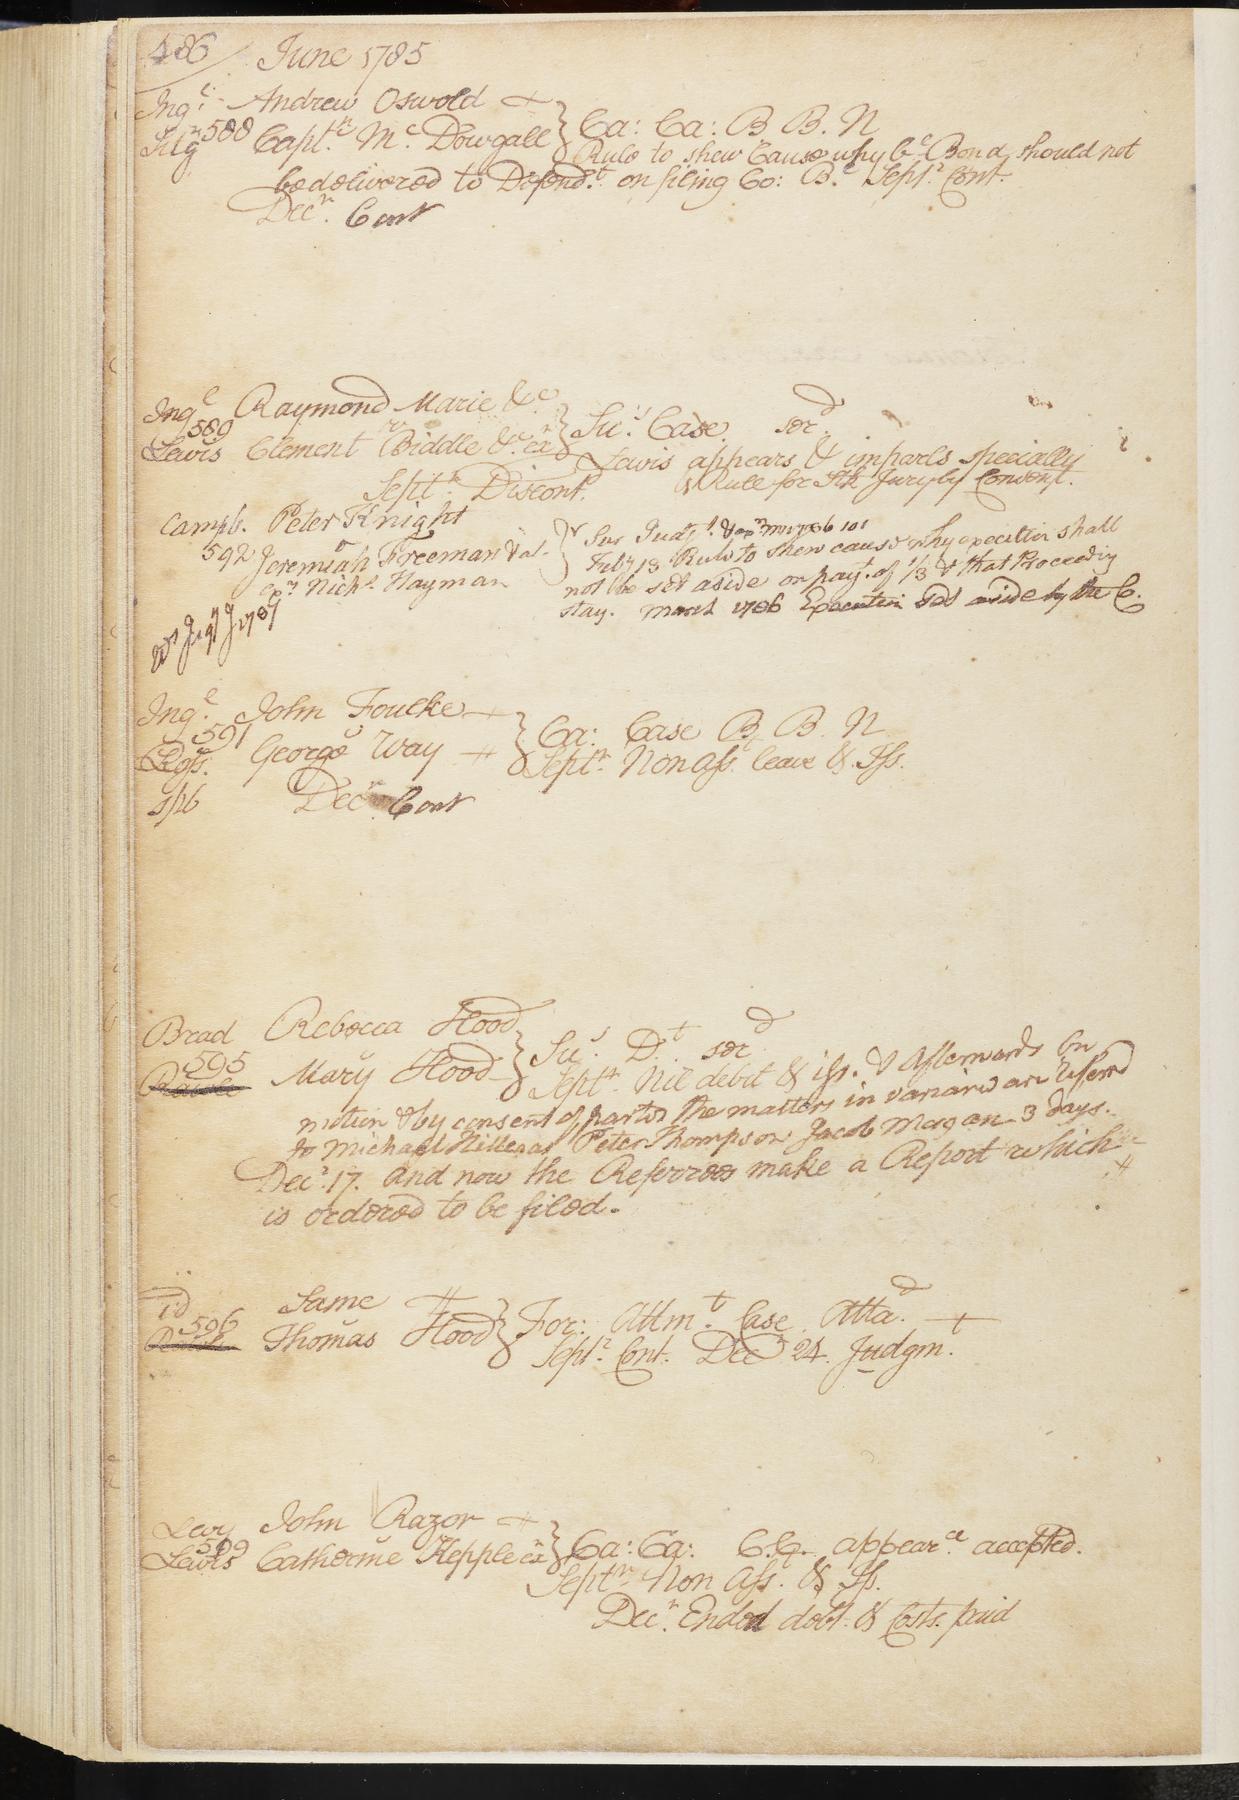 486 June 1785
Ingl. Andrew Oswold
588 Capt.n Mc. Dowgall } Ca: Ca: B B. N
Rule to shew Cause why bl Bond should not
be delivered to Defend.t on filing Co: B.l Sept.r Cont.
Dec.r Cont
Ingl Raymond Marie &c
589 v
Lewis Clement Biddle &c ex } Su.s Case serd.
Lewis appears & imparls specially
Sept.r Discont. & Rule for Stk Jury by Consent.
Campb. Peter Knight
592 v
Jeremiah Freeman & al.
exr Nich.s Hayman
Feby 18 Rule to shew cause why execution shall
not be set aside on payt. of 1/3 & that Proceedig
stay. March 1786 Execution set aside by the C.
Ingl. John Foulke
591 v
George Way } Ca: Case B B. N
Ross. Sept.r Non Ass. leave & Iss.
spl Decr Cont
Brad Rebecca Hood
595 v
Mary Hood } Su.s D.t serd
Sept.r Nil debit & iss. & Afterwards on
motion & by consent of parties the matters in variance are referred
to Michael Hillegas Peter Thompson Jacob Morgan 3 days.
Dec.r 17. And now the Referrees make a Report which
is ordered to be filed.
id Same
596 v
Thomas Hood } For: Attm.t Case Attad.
Sept.r Cont. Decr 24. Judgm.
Levy John Razor
599 v
Lewis Catherine Kepple ex } Ca: Ca: C.C. appear.ce accepted.
Septr Non Ass. & Iss.
Dec.r Ended debt & Costs paid